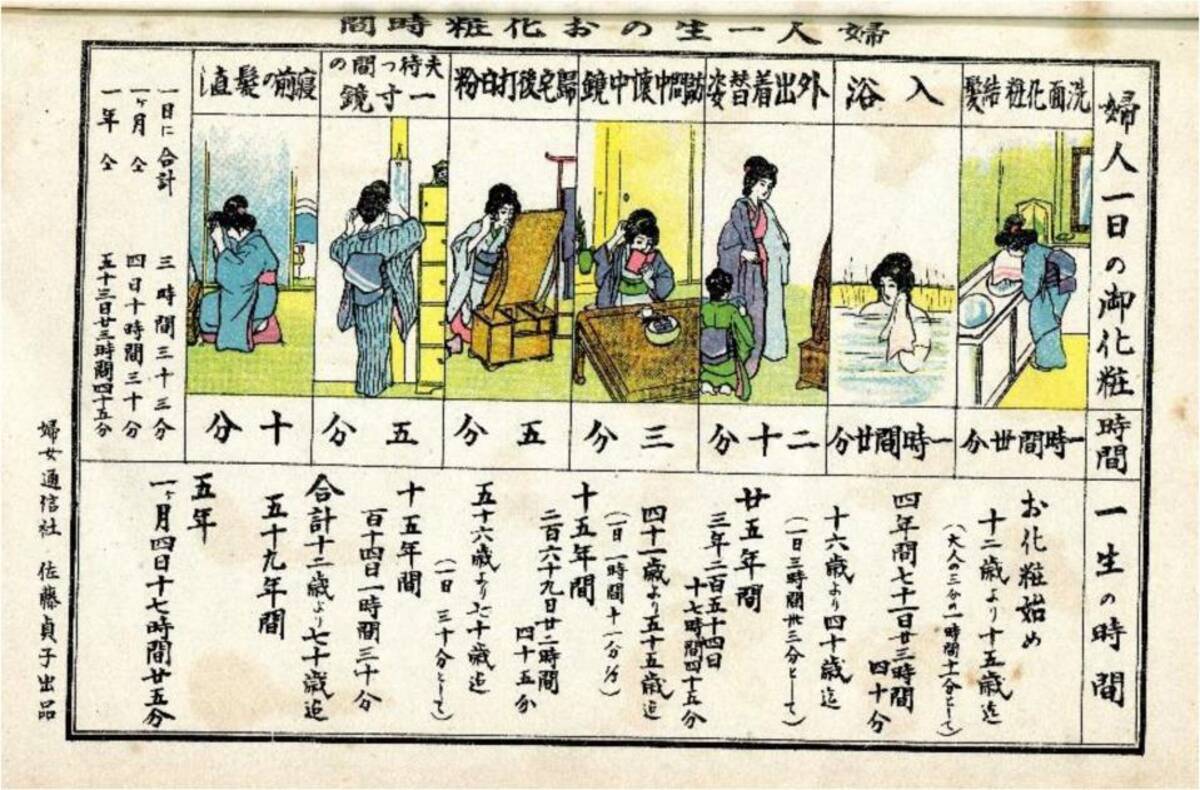 婦人一生のお化粧時間
婦人一日の御化粧
時間
洗面化粧結髪
一時間丗分
入浴
一時間廿分
外出着替姿
二十分
訪問中懐中鏡
三分
歸宅後打白粉
五分
夫待つ間の
一寸鏡
五分
寝前の髪直し
十分
一日に合計 三時間三十三分
一ヶ月仝 四日十時間三十分
一年仝 五十三日廿三時間四十五分
一生の時間
お化粧始め
十二歳より十五歳迄
(大人の三分の一時間十一分として)
四年間七十一日廿三時間
四十分
十六歳より四十歳迄
(一日三時間丗三分として)
廿五年間
三年二百五十四日
十七時間四十五分
四十一歳より五十五歳迄
(一日一時間十一分⅓)
十五年間
二百六十九日廿二時間
四十五分
五十六歳より七十歳迄
(一日三十分として)
十五年間
百十四日一時間三十分
合計十二歳より七十歳迄
五十九年間
五年
一ヶ月四日十七時間廿五分
婦女通信社 佐藤貞子出品